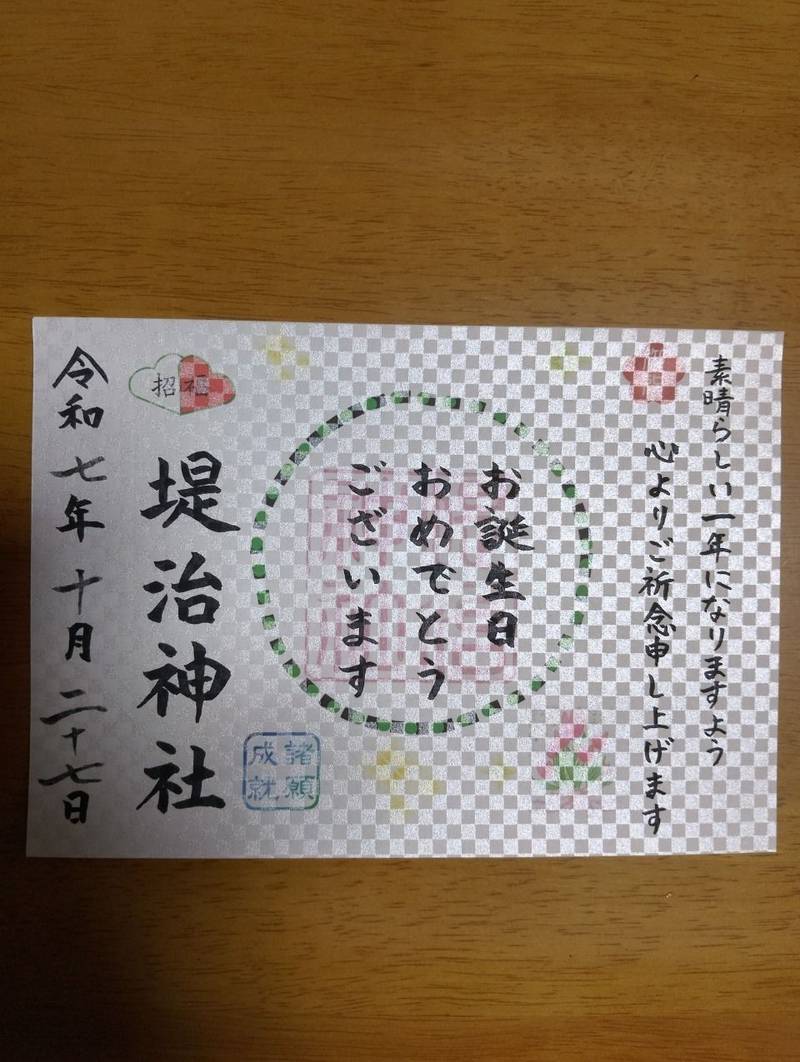 素晴らしい一年になりますよう
心よりご祈念申し上げます
お誕生日
おめでとう
ございます
諸願
成就
招福
堤治神社
令和七年十月二十七日